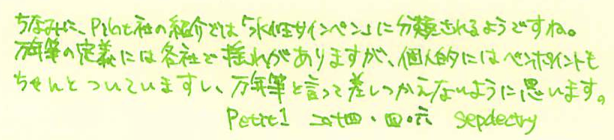 ちなみに、Pilot社の紹介では「水性サインペン」に分類されるようですね。
万年筆の定義には各社で揺れがありますが、個人的にはペンポイントも
ちゃんとついていますし、万年筆と言って差しつかえないように思います。
Petit1 二十四・四・六 sepdectry